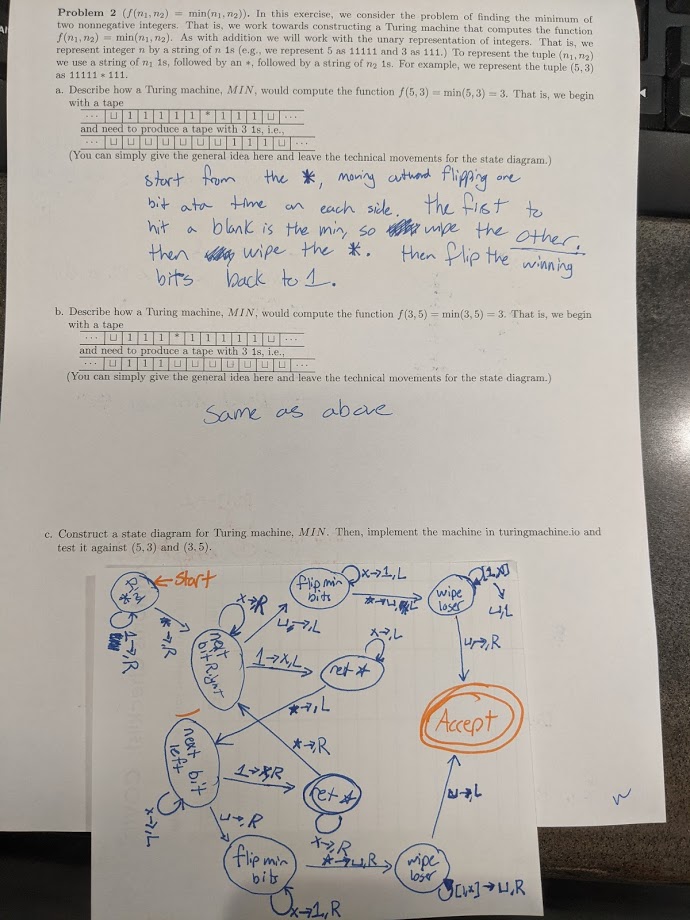 Problem 2 (f(n1, n2) = min(n1, n2)). In this exercise, we consider the problem of finding the minimum of
two nonnegative integers. That is, we work towards constructing a Turing machine that computes the function
f(n1, n2) = min(n1, n2). As with addition we will work with the unary representation of integers. That is, we
represent integer n by a string of n 1s (e.g., we represent 5 as 11111 and 3 as 111.) To represent the tuple (n1, n2)
we use a string of n1 1s, followed by an *, followed by a string of n2 1s. For example, we represent the tuple (5, 3)
as 11111 * 111.
a. Describe how a Turing machine, MIN, would compute the function f(5, 3) = min(5, 3) = 3. That is, we begin
with a tape
··· ⊔ 1 1 1 1 1 * 1 1 1 ⊔ ···
and need to produce a tape with 3 1s, i.e.,
··· ⊔ ⊔ ⊔ ⊔ ⊔ ⊔ ⊔ 1 1 1 ⊔ ···
(You can simply give the general idea here and leave the technical movements for the state diagram.)
start from the *, moving outward flipping one
bit at a time on each side. The first to
hit a blank is the min, so wipe the other.
then wipe the *. then flip the winning
bits back to 1.
b. Describe how a Turing machine, MIN, would compute the function f(3, 5) = min(3, 5) = 3. That is, we begin
with a tape
··· ⊔ 1 1 1 * 1 1 1 1 1 ⊔ ···
and need to produce a tape with 3 1s, i.e.,
··· ⊔ 1 1 1 ⊔ ⊔ ⊔ ⊔ ⊔ ⊔ ⊔ ···
(You can simply give the general idea here and leave the technical movements for the state diagram.)
Same as above
c. Construct a state diagram for Turing machine, MIN. Then, implement the machine in turingmachine.io and
test it against (5, 3) and (3, 5).
← Start
1→,R
*→,R
next
bit Right
x→R
⊔→,L
flip min
bits
x→1,L
*→⊔,L
wipe
loser
[1,x]
→
⊔,L
⊔→,R
1→x,L
ret *
x→,L
*→,L
Accept
next bit
left
x→,L
1→x,R
ret *
x→,R
*→,R
⊔→,R
flip min
bits
x→1,R
*→⊔,R
wipe
loser
[1,x]→⊔,R
⊔→,L